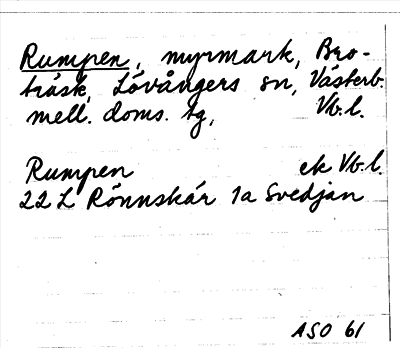 Rumpen, myrmark, Bro-
träsk, Lövångers sn, Västerb.
mell. doms. tg, Vb.l.
Rumpen ek Vb.l.
22 L Rönnskär 1a Svedjan
ASO 61